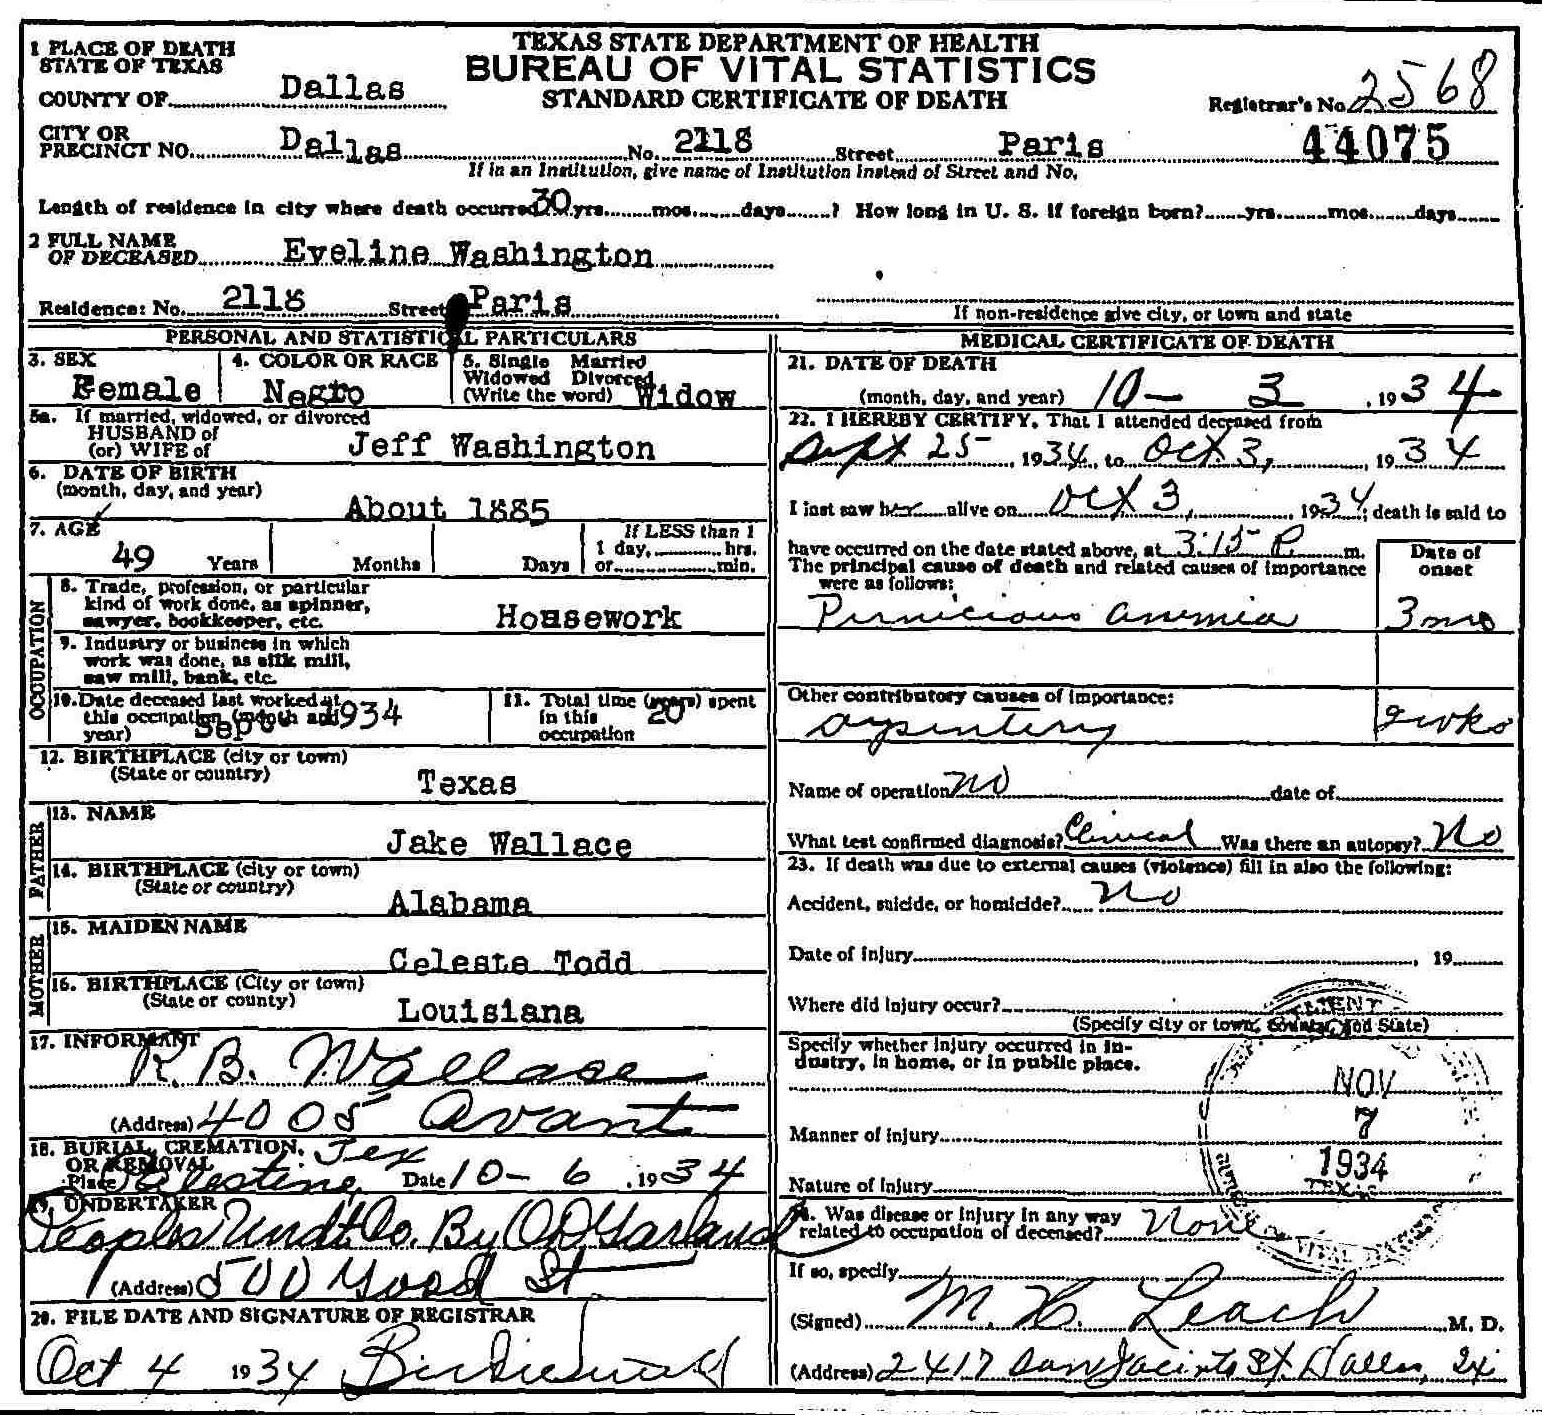 TEXAS STATE DEPARTMENT OF HEALTH
BUREAU OF VITAL STATISTICS
STANDARD CERTIFICATE OF DEATH
Registrar's No. 2568
44075
1 PLACE OF DEATH
STATE OF TEXAS
COUNTY OF Dallas
CITY OR
PRECINCT NO. Dallas No. 2118 Street Paris
If in an Institution, give name of Institution instead of Street and No.
Length of residence in city where death occurred 30 yrs. mos. days ? How long in U. S. if foreign born? yrs. mos. days
2 FULL NAME
OF DECEASED Eveline Washington
Residence: No. 2118 Street Paris
If non-residence give city, or town and state
PERSONAL AND STATISTICAL PARTICULARS
3. SEX
Female
4. COLOR OR RACE
Negro
5. Single Married
Widowed Divorced
(Write the word) Widow
5a. If married, widowed, or divorced
HUSBAND of
(or) WIFE of Jeff Washington
6. DATE OF BIRTH
(month, day, and year)
About 1885
7. AGE
49 Years Months Days
If LESS than 1
1 day, hrs.
or min.
OCCUPATION
8. Trade, profession, or particular
kind of work done, as spinner,
sawyer, bookkeeper, etc. Housework
9. Industry or business in which
work was done, as silk mill,
saw mill, bank, etc.
10. Date deceased last worked at
this occupation (month and
year) Sept 1934
11. Total time (years) spent
in this 20
occupation
12. BIRTHPLACE (city or town)
(State or country) Texas
FATHER
13. NAME
Jake Wallace
14. BIRTHPLACE (city or town)
(State or country)
Alabama
MOTHER
15. MAIDEN NAME
Celeste Todd
16. BIRTHPLACE (City or town)
(State or county) Louisiana
17. INFORMANT
R. B. Wallace
(Address) 4005 Avant
18. BURIAL, CREMATION, Tex
OR REMOVAL
Place Palestine Date 10-6, 1934
19. UNDERTAKER
Peoples Undt Co. By O D Garland
(Address) 500 Good St
20. FILE DATE AND SIGNATURE OF REGISTRAR
Oct 4 1934
MEDICAL CERTIFICATE OF DEATH
21. DATE OF DEATH
(month, day, and year) 10- 3, 1934
22. I HEREBY CERTIFY, That I attended deceased from
Sept 25, 1934, to Oct 3, 1934
I last saw her alive on Oct 3, 1934; death is said to
have occurred on the date stated above, at 3:15 P. m.
The principal cause of death and related causes of importance
were as follows:
Date of
onset
Pernicious anemia 3 mo
Other contributory causes of importance:
Dysentery 2 wks
Name of operation No date of
What test confirmed diagnosis? Clinical Was there an autopsy? No
23. If death was due to external causes (violence) fill in also the following:
Accident, suicide, or homicide? No
Date of injury , 19
Where did injury occur?
(Specify city or town, county, and State)
Specify whether injury occurred in in-
dustry, in home, or in public place.
Manner of injury
Nature of injury
NOV
7
1934
TEXAS
VITAL
24. Was disease or injury in any way
related to occupation of deceased? None
If so, specify
(Signed) M. H. Leach M. D.
(Address) 2417 San Jacinto St. Dallas,